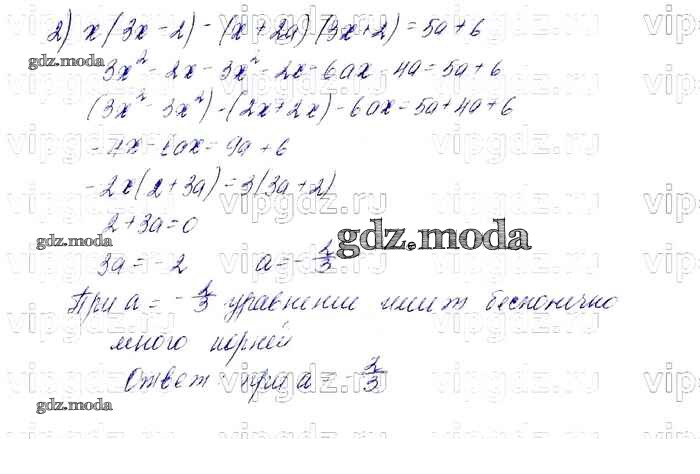 2) x(3x-2) - (x+2a)(3x+2) = 5a+6
gdz.moda
3x² - 2x - 3x² - 2x - 6ax - 4a = 5a + 6
(3x² - 3x²) - (2x+2x) - 6ax = 5a + 4a + 6
-4x - 6ax = 9a + 6
-2x(2+3a) = 3(3a+2)
2+3a=0
gdz.moda
gdz.moda
3a = -2 a = -2/3
При a = -2/3 уравнение имеет бесконечно
много корней
Ответ при a = -2/3
gdz.moda